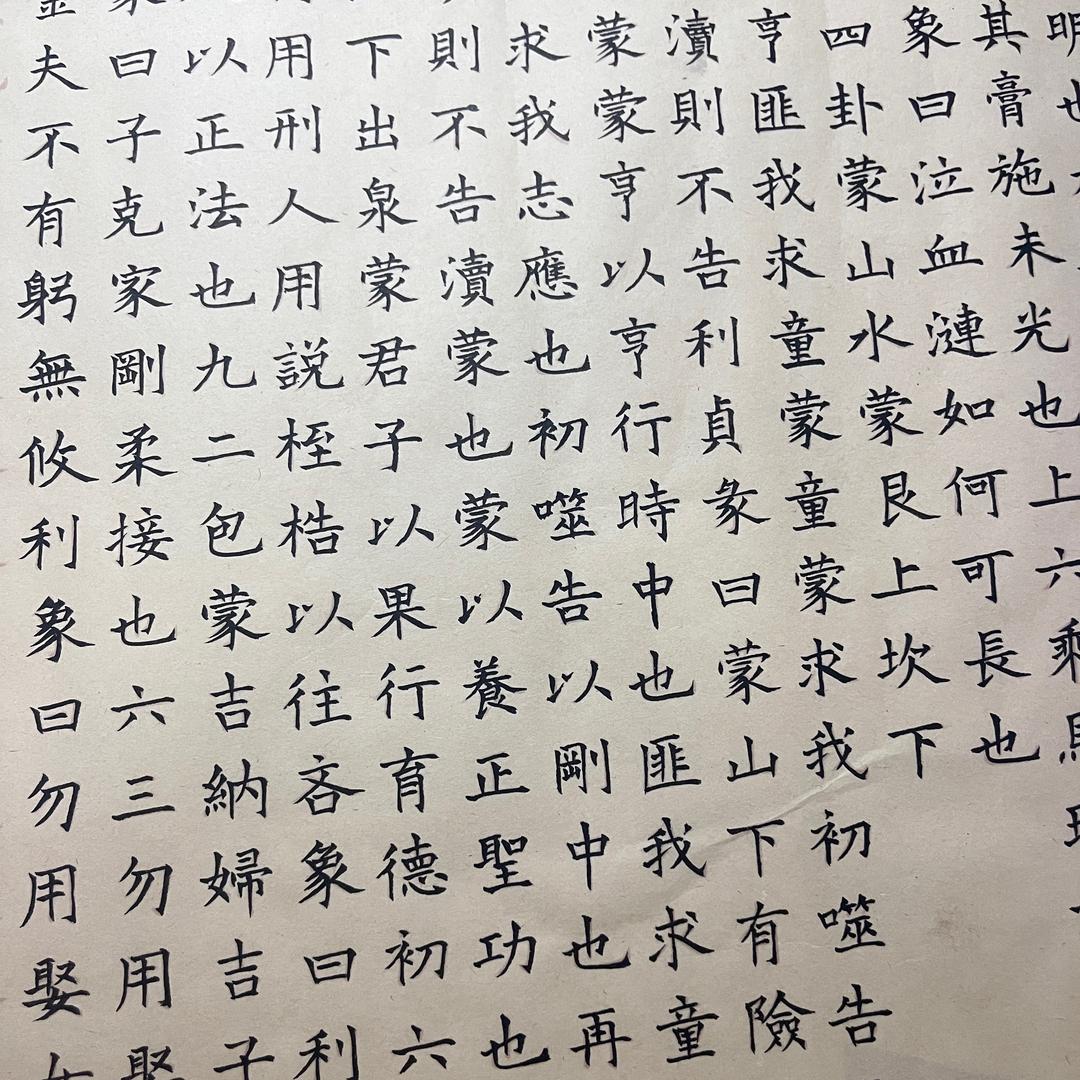 明
其膏施未光也上六乘馬
象曰泣血漣如何可長也
四卦蒙山水蒙艮上坎下
亨匪我求童蒙童蒙求我初噬告
瀆則不告利貞彖曰蒙山下有險
蒙蒙亨以亨行時中也匪我求童
求我志應也初噬告以剛中也再
則不告瀆蒙也蒙以養正聖功也
下出泉蒙君子以果行育德初六
用刑人用説桎梏以往吝象曰利
以正法也九二包蒙吉納婦吉子
象曰子克家剛柔接也六三勿用娶
金夫不有躬無攸利象曰勿用娶女